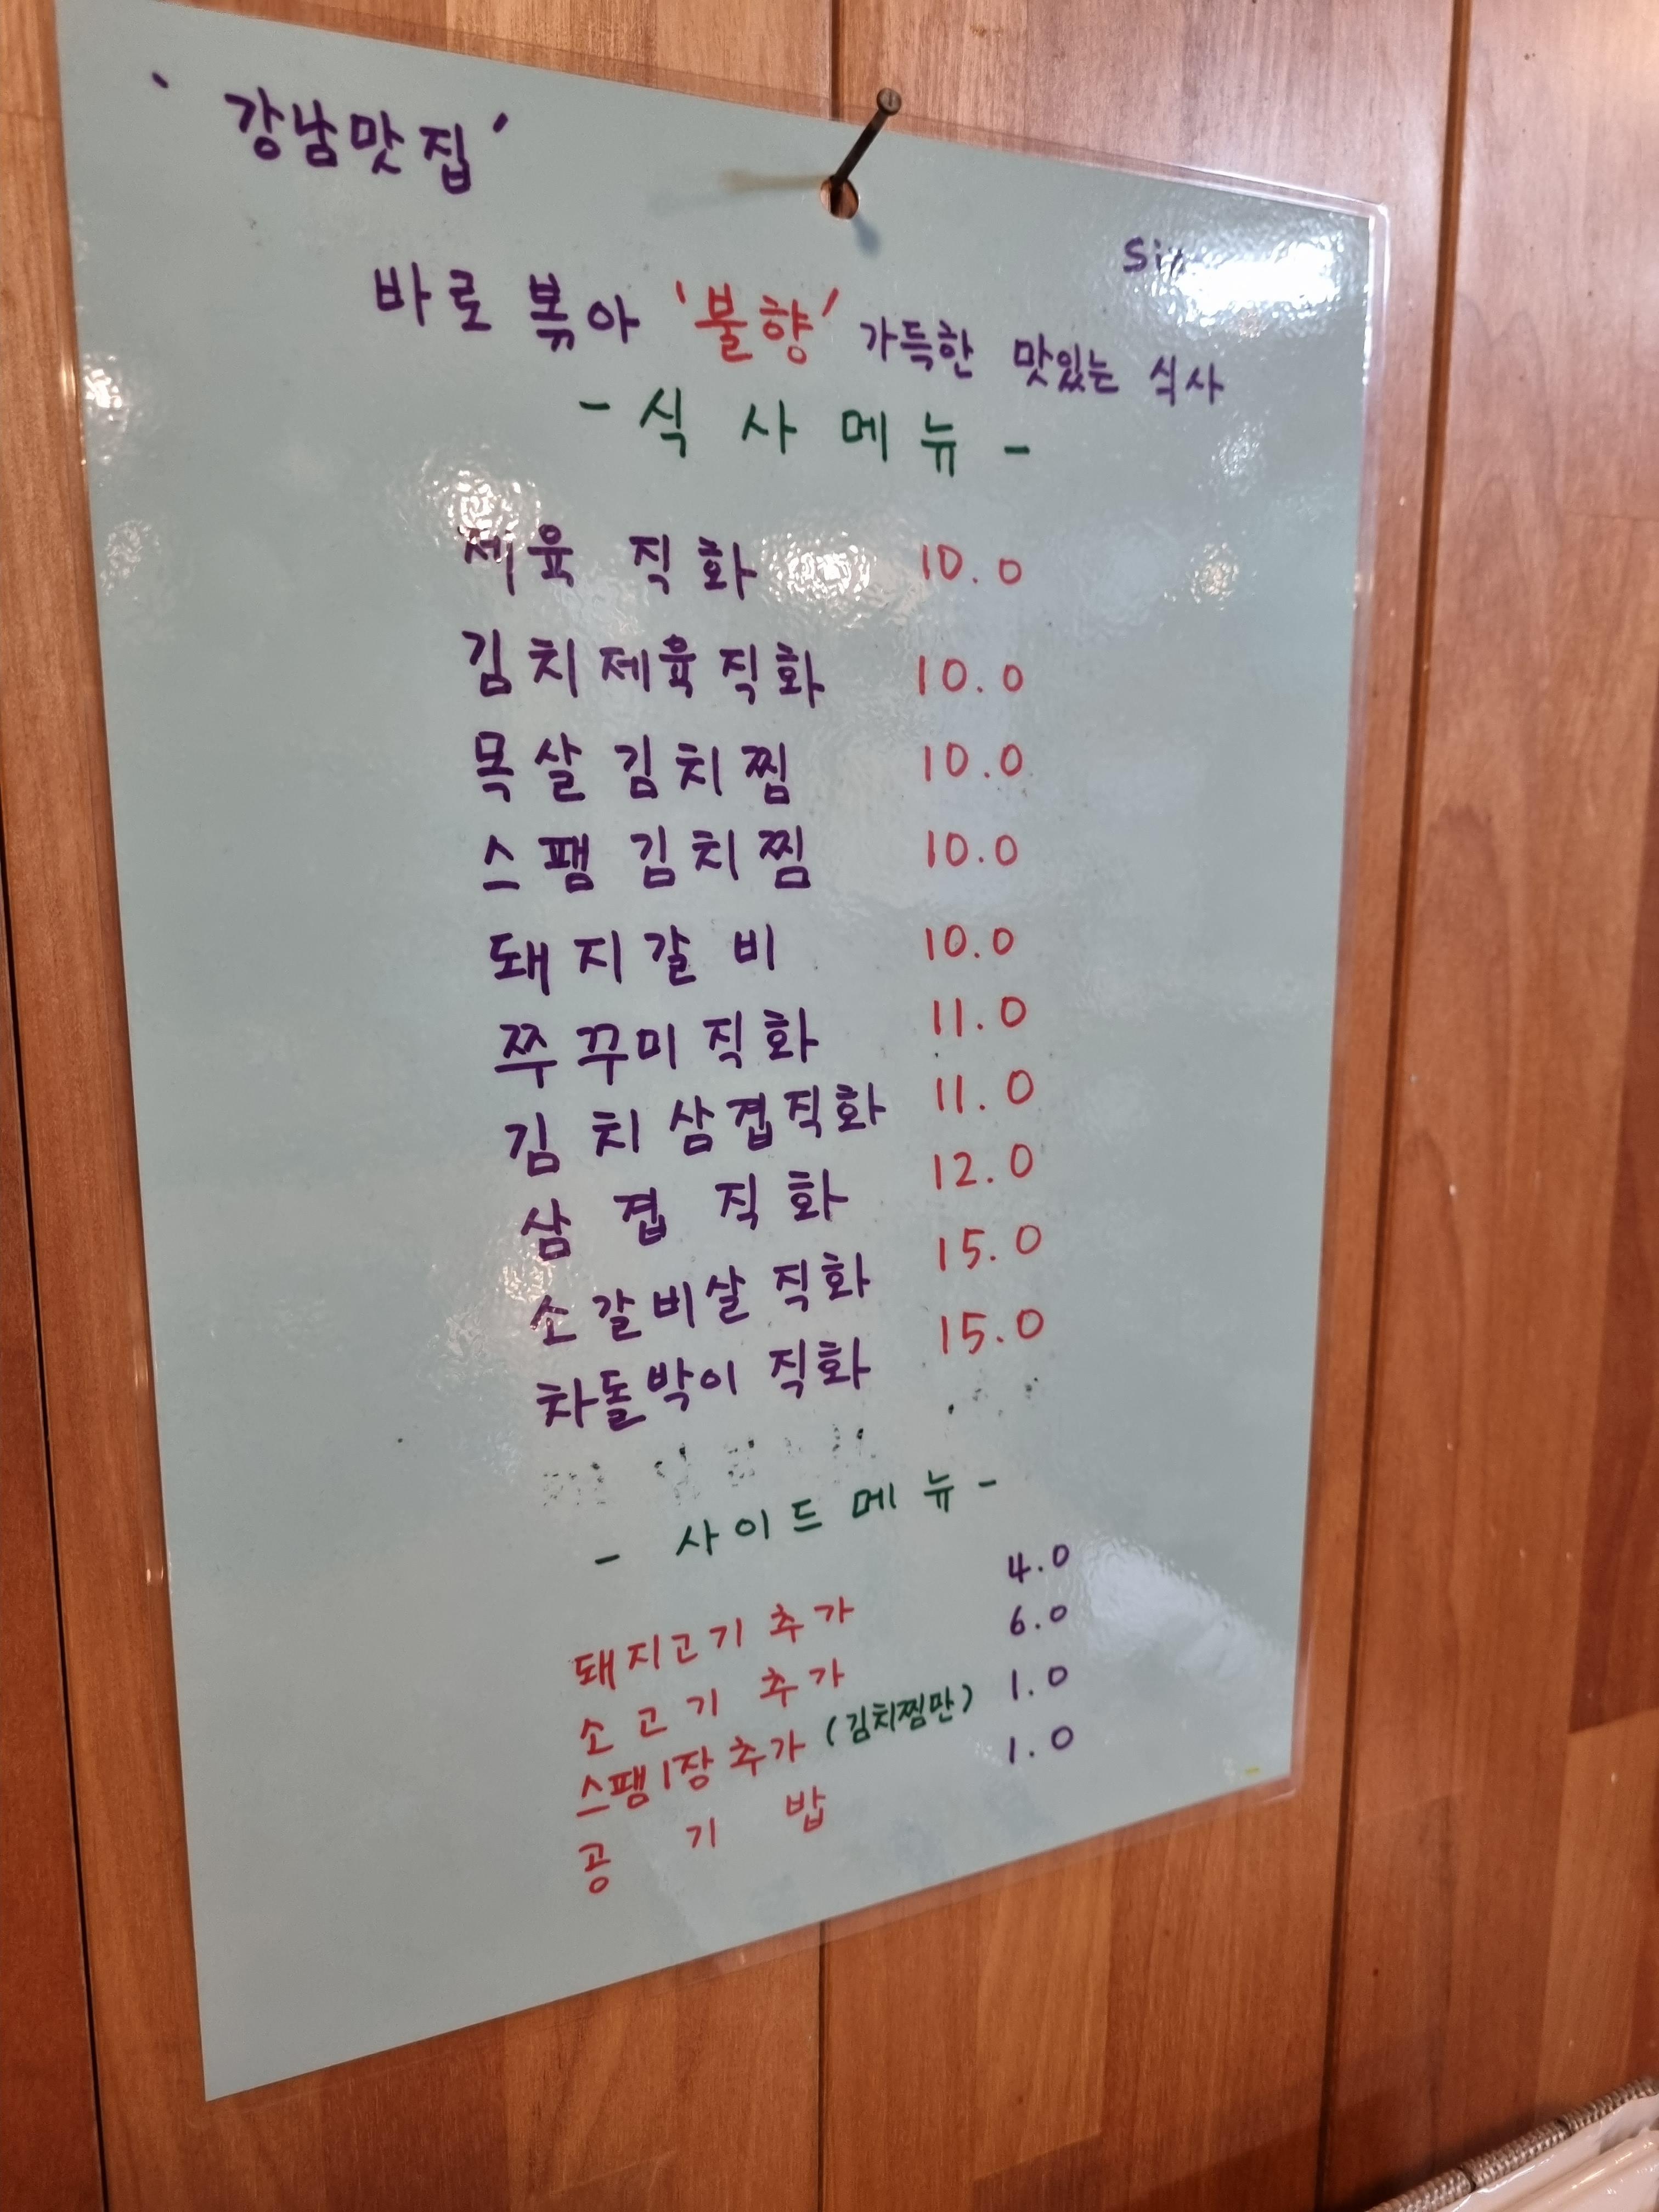 '강남맛집'
바로 볶아 '불향' 가득한 맛있는 식사
- 식사메뉴 -
제육 직화 10.0
김치제육직화 10.0
목살김치찜 10.0
스팸김치찜 10.0
돼지갈비 10.0
쭈꾸미직화 11.0
김치삼겹직화 11.0
삼겹직화 12.0
소갈비살직화 15.0
차돌박이 직화 15.0
- 사이드메뉴 -
돼지고기 추가 4.0
소고기 추가 6.0
스팸1장추가 (김치찜만) 1.0
공기밥 1.0